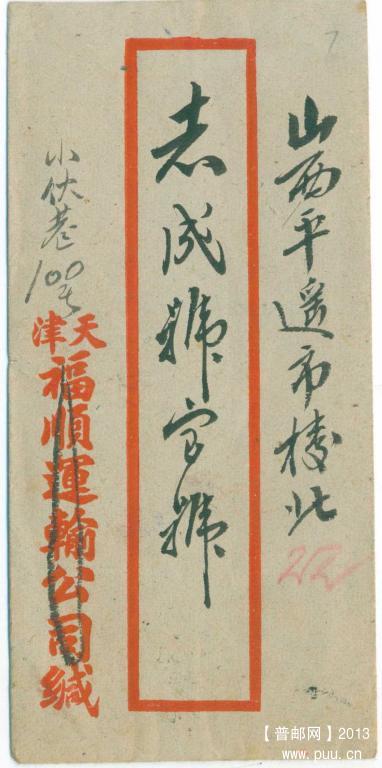 山西平遥市楼北
志成號宝號
小伏巷
100号
天津
福順運輸公司緘
【普邮网】2013
www.puu.cn